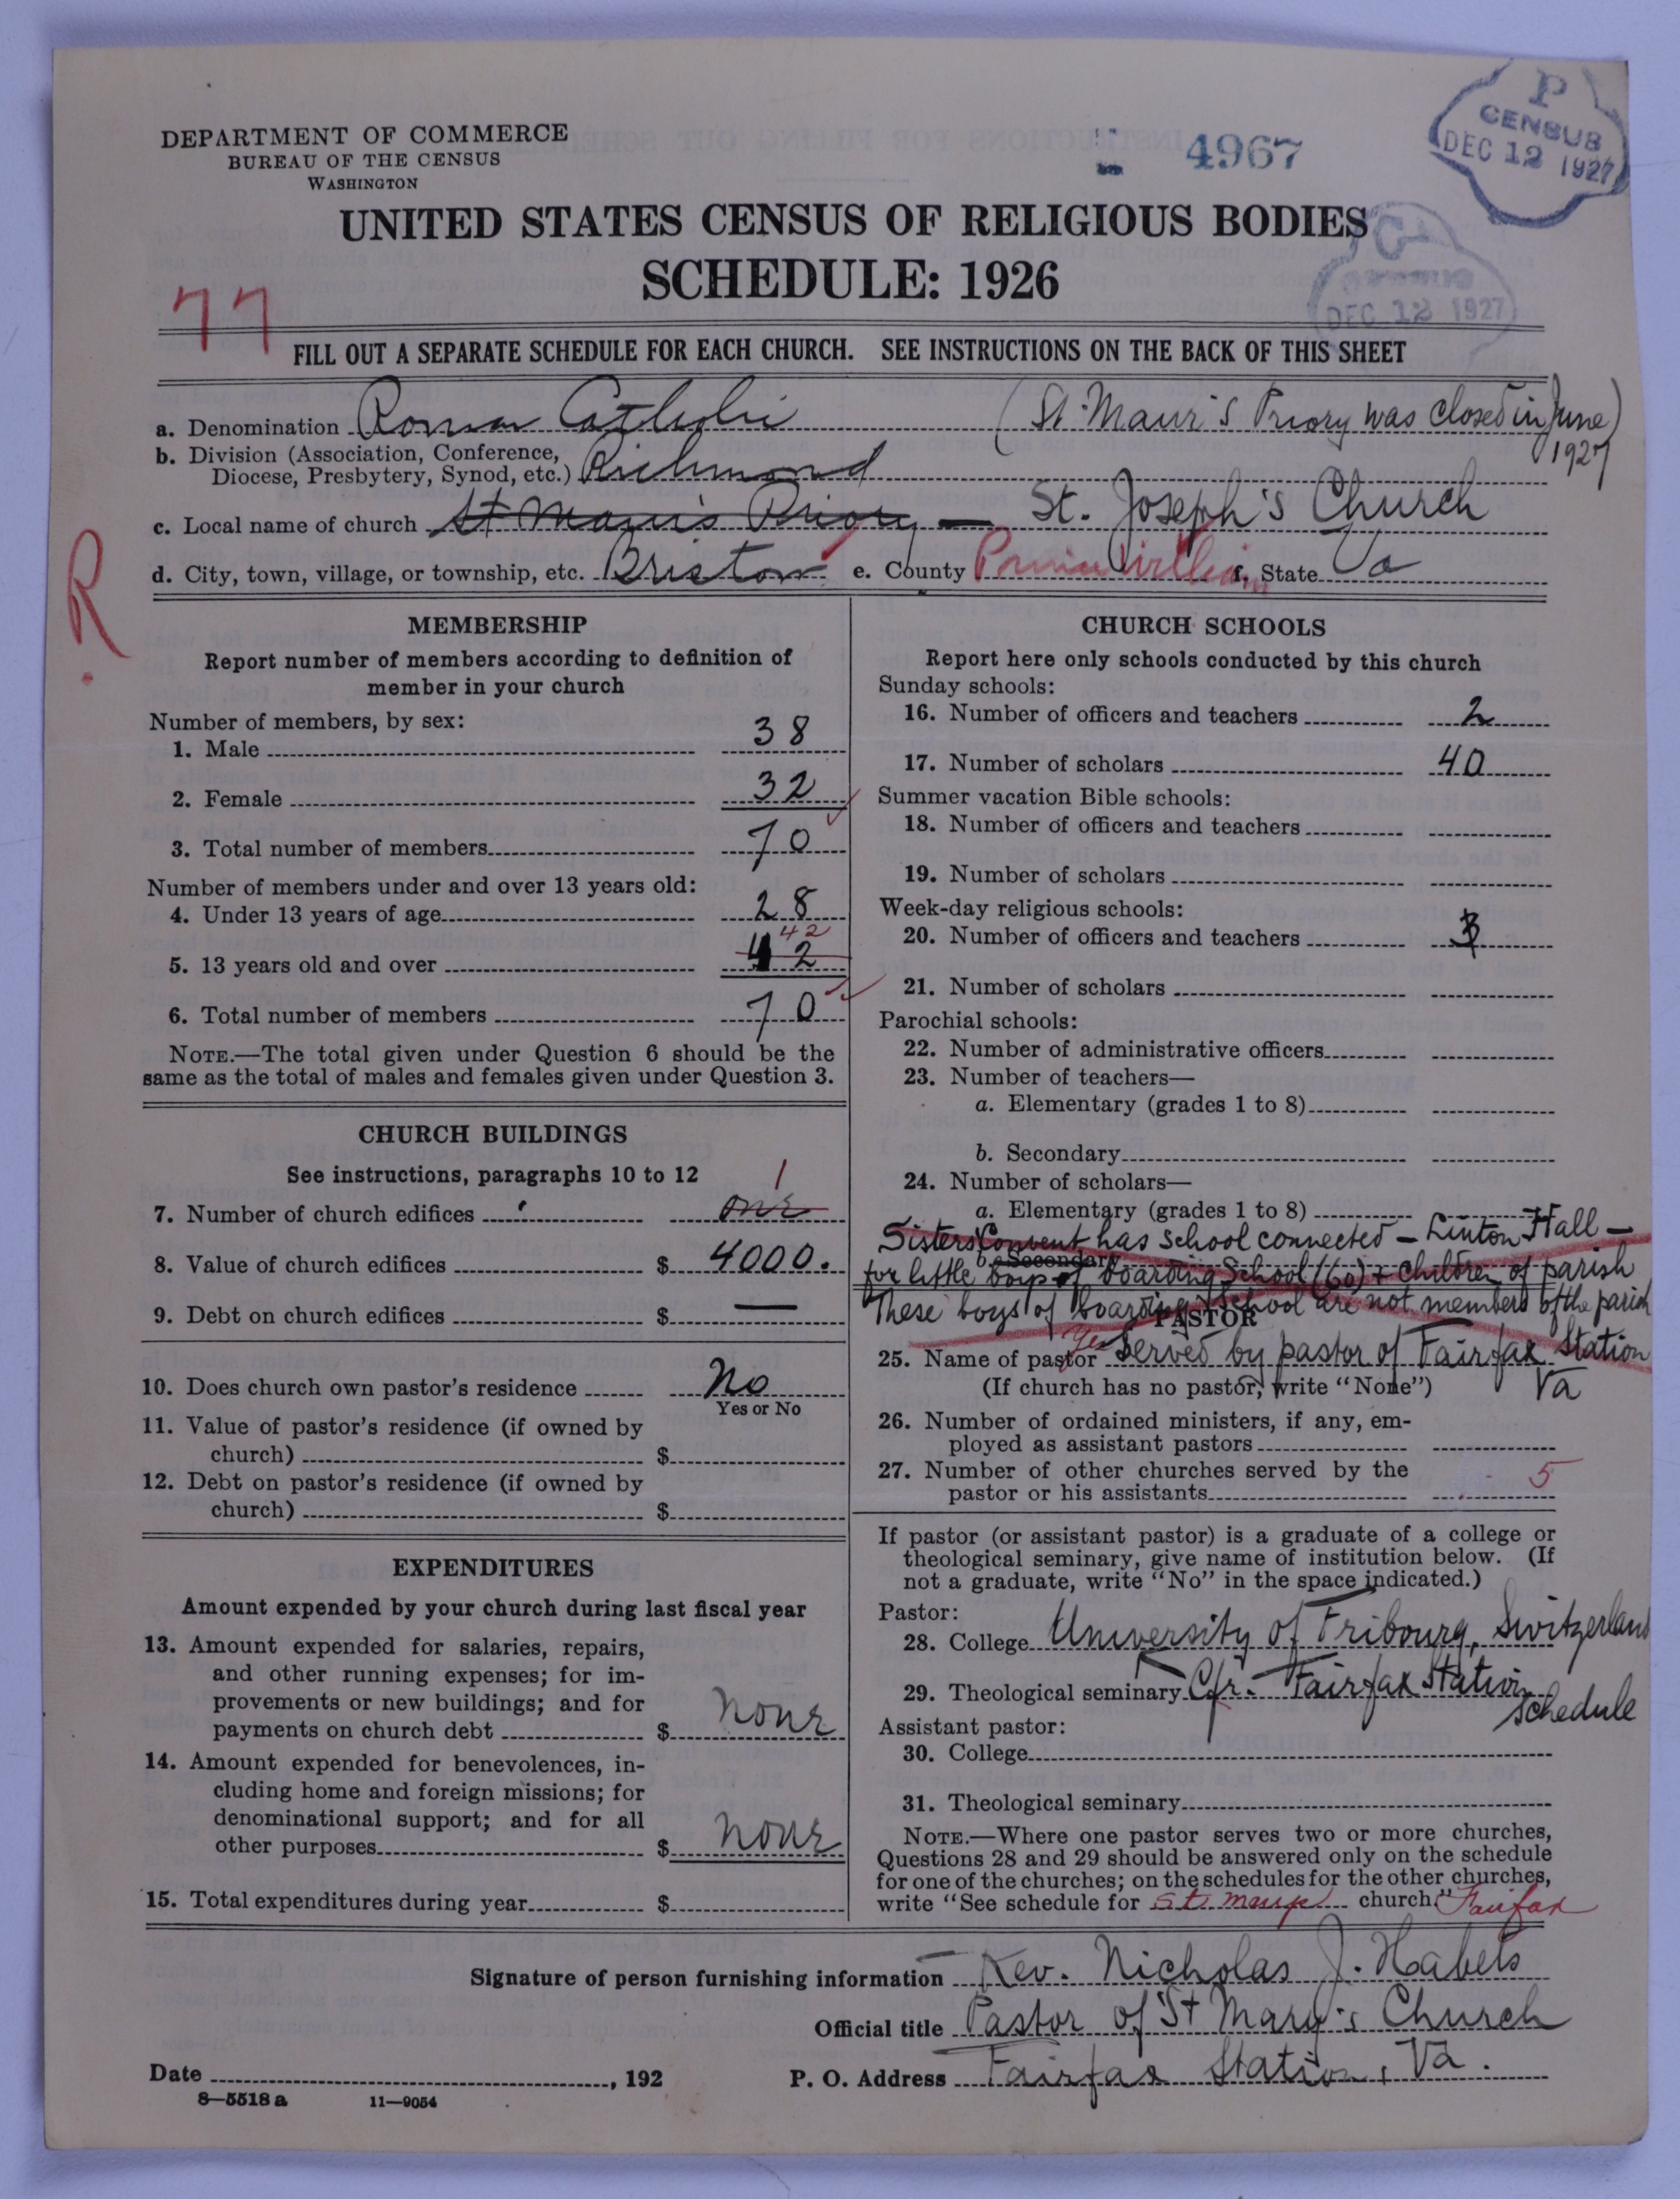 DEPARTMENT OF COMMERCE
BUREAU OF THE CENSUS
WASHINGTON
4967
P
CENSUS
DEC 12 1927
UNITED STATES CENSUS OF RELIGIOUS BODIES
SCHEDULE: 1926
C
CENSUS
DEC 12 1927
77
FILL OUT A SEPARATE SCHEDULE FOR EACH CHURCH. SEE INSTRUCTIONS ON THE BACK OF THIS SHEET
a. Denomination Roman Catholic (St. Maur's Priory was closed in June 1927)
b. Division (Association, Conference,
Diocese, Presbytery, Synod, etc.) Richmond
c. Local name of church St Maur's Priory — St. Joseph's Church
d. City, town, village, or township, etc. Bristow e. County Prince William f. State Va
R
MEMBERSHIP
Report number of members according to definition of
member in your church
Number of members, by sex:
1. Male 38
2. Female 32
3. Total number of members 70
Number of members under and over 13 years old:
4. Under 13 years of age 28
42
5. 13 years old and over 42
6. Total number of members 70
NOTE.—The total given under Question 6 should be the
same as the total of males and females given under Question 3.
CHURCH BUILDINGS
See instructions, paragraphs 10 to 12
1
7. Number of church edifices one
8. Value of church edifices $ 4000.
9. Debt on church edifices $ —
10. Does church own pastor's residence No
Yes or No
11. Value of pastor's residence (if owned by
church) $
12. Debt on pastor's residence (if owned by
church) $
EXPENDITURES
Amount expended by your church during last fiscal year
13. Amount expended for salaries, repairs,
and other running expenses; for im-
provements or new buildings; and for
payments on church debt $ none
14. Amount expended for benevolences, in-
cluding home and foreign missions; for
denominational support; and for all
other purposes $ none
15. Total expenditures during year $
CHURCH SCHOOLS
Report here only schools conducted by this church
Sunday schools:
16. Number of officers and teachers 2
17. Number of scholars 40
Summer vacation Bible schools:
18. Number of officers and teachers
19. Number of scholars
Week-day religious schools:
20. Number of officers and teachers 3
21. Number of scholars
Parochial schools:
22. Number of administrative officers
23. Number of teachers—
a. Elementary (grades 1 to 8)
b. Secondary
24. Number of scholars—
a. Elementary (grades 1 to 8)
Sisters Convent has school connected — Linton Hall —
b. Secondary
for little boys of boarding School (60) + children of parish
These boys of boarding School are not members of the parish
PASTOR
yes
25. Name of pastor Served by pastor of Fairfax Station
Va
(If church has no pastor, write "None")
26. Number of ordained ministers, if any, em-
ployed as assistant pastors
27. Number of other churches served by the
pastor or his assistants 5
If pastor (or assistant pastor) is a graduate of a college or
theological seminary, give name of institution below. (If
not a graduate, write "No" in the space indicated.)
Pastor:
28. College University of Fribourg, Switzerland
29. Theological seminary Cfr. Fairfax Station
schedule
Assistant pastor:
30. College
31. Theological seminary
NOTE.—Where one pastor serves two or more churches,
Questions 28 and 29 should be answered only on the schedule
for one of the churches; on the schedules for the other churches,
write "See schedule for St. Mary church." Fairfax
Signature of person furnishing information Rev. Nicholas J. Habets
Official title Pastor of St Mary's Church
Date , 192 P. O. Address Fairfax Station, Va.
8—5518 a 11—9054